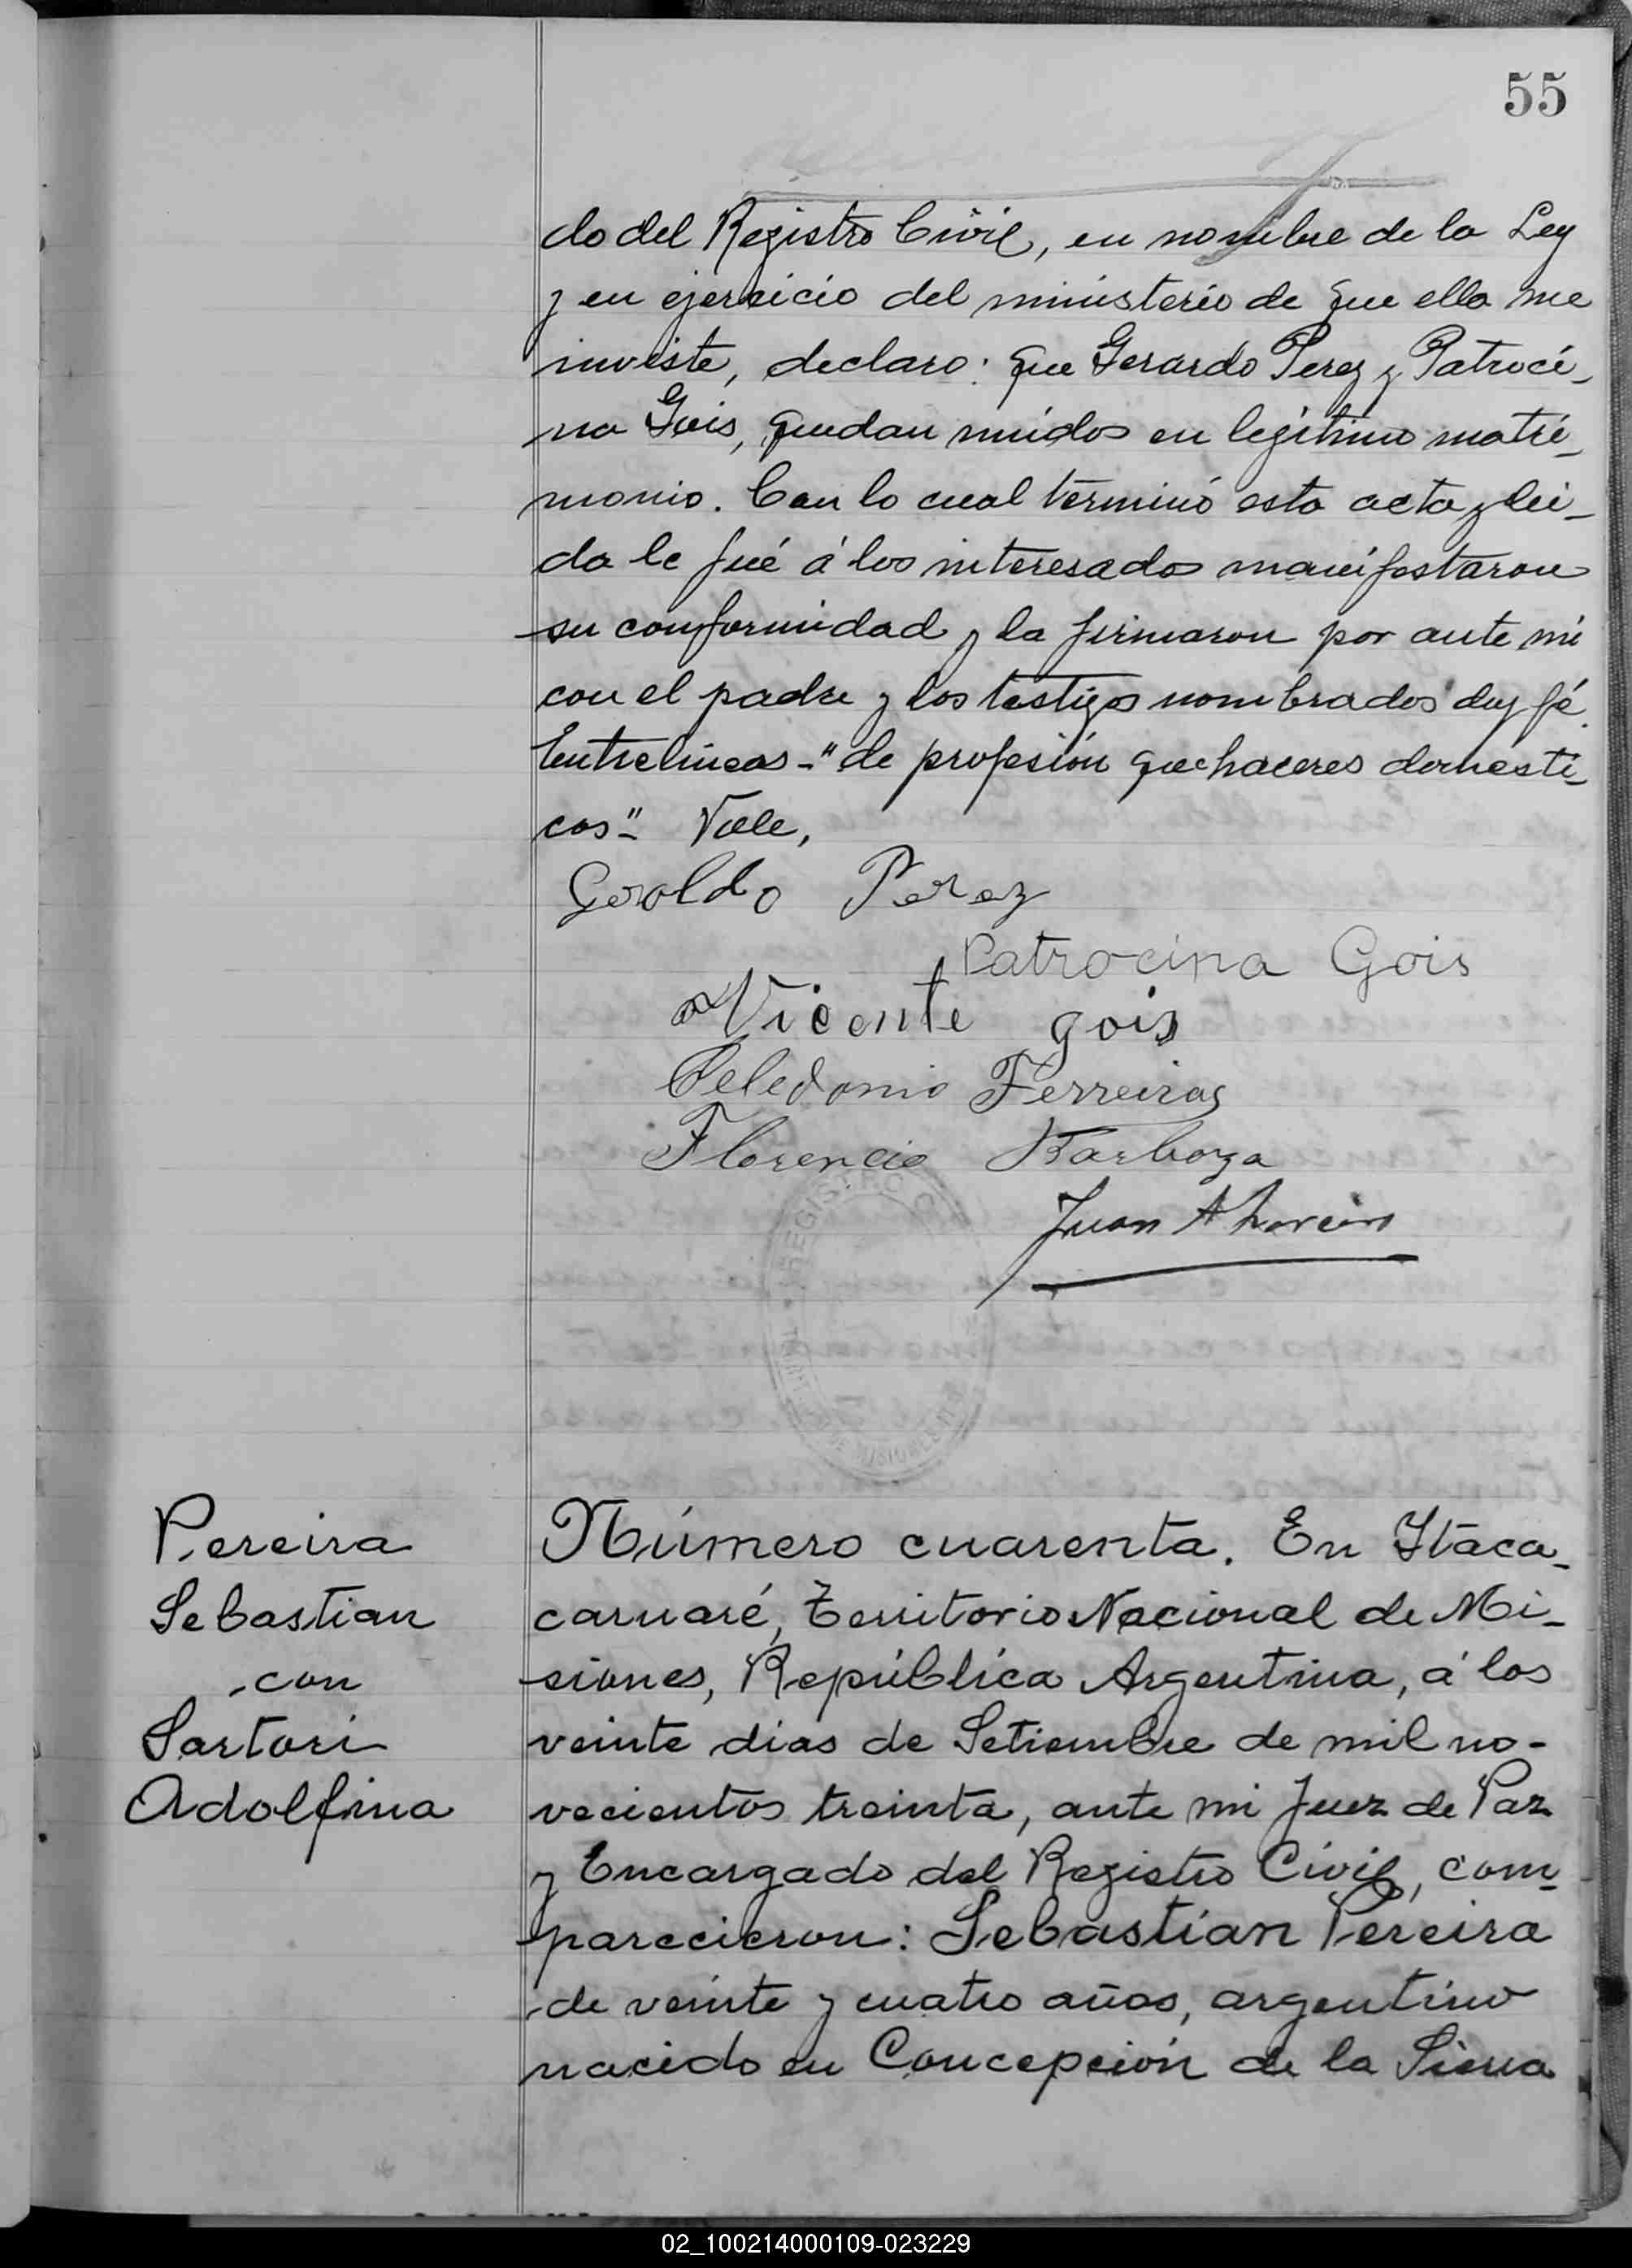 55
do del Registro Civil, en nombre de la Ley
y en ejercicio del ministerio de que ella me
inviste, declaro: que Gerardo Perez y Patroci-
na Gois, quedan unidos en legítimo matri-
monio. Con lo cual terminó esta acta y lei-
da le fué á los interesados manifestaron
su conformidad y la firmaron por ante mi
con el padre y los testigos nombrados doy fé.
Entrelineas-"de profesión quehaceres domesti-
cos"- Vale,
Geraldo Perez
Patrocina Gois
Vicente gois
Celedonio Ferreira
Florencio Barboza
Juan A
REGISTRO C
DE MISIONES
Pereira
Sebastian
con
Sartori
Adolfina
Número cuarenta. En Itaca-
caruaré, Territorio Nacional de Mi-
siones, República Argentina, á los
veinte dias de Setiembre de mil no-
vecientos treinta, ante mi Juez de Paz
y Encargado del Registro Civil, com-
parecieron: Sebastián Pereira
de veinte y cuatro años, argentino
nacido en Concepción de la Sierra
02_100214000109-023229